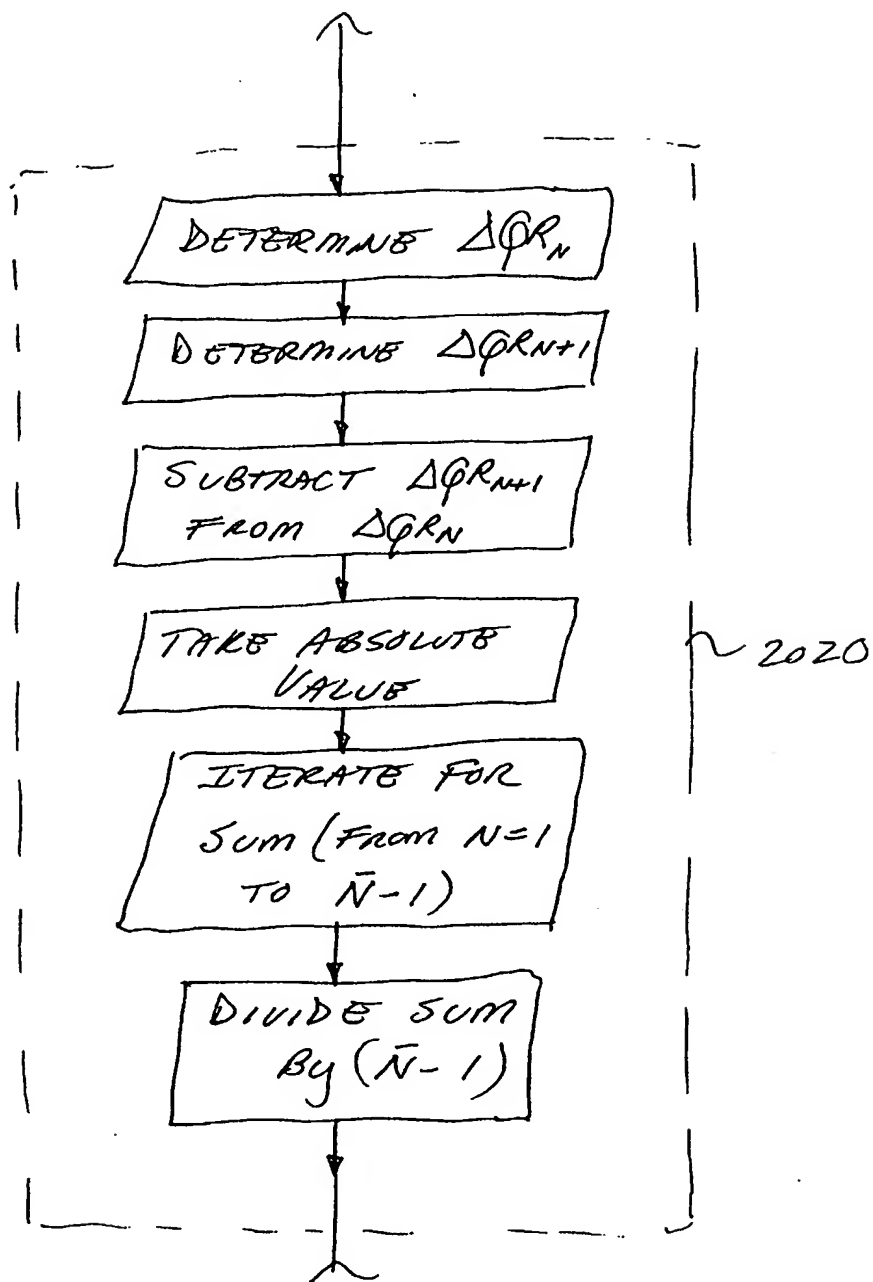 DETERMINE ΔφR_N
DETERMINE ΔφR_N+1
SUBTRACT ΔφR_N+1
FROM ΔφR_N
TAKE ABSOLUTE
VALUE
ITERATE FOR
SUM (FROM N=1
TO N̄-1)
DIVIDE SUM
By (N̄-1)
2020